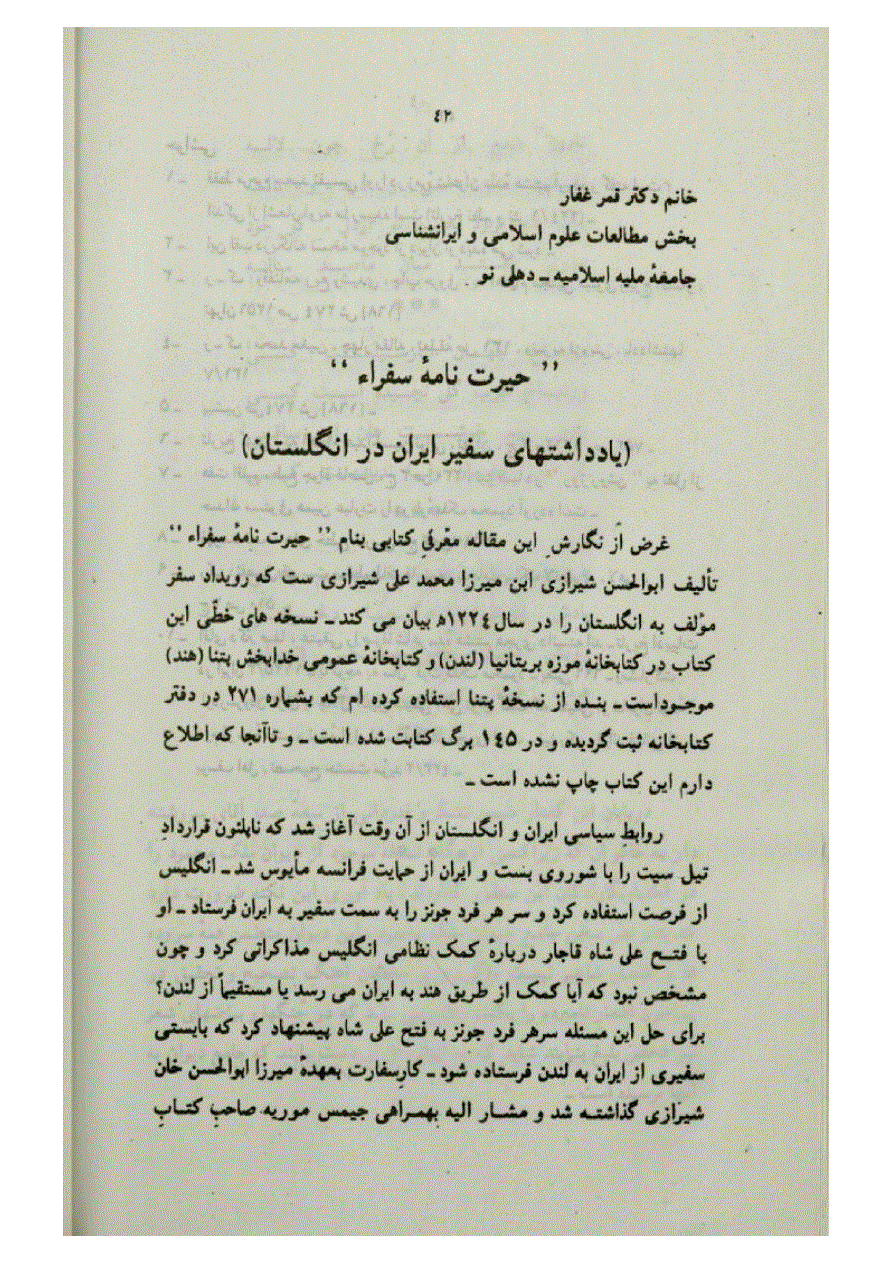 ٤٢
خانم دکتر قمر غفار
بخش مطالعات علوم اسلامی و ایرانشناسی
جامعهٔ ملیه اسلامیه ـ دهلی نو
”حیرت نامهٔ سفراء“
(یادداشتهای سفیر ایران در انگلستان)
غرض از نگارشِ این مقاله معّرفیِ کتابی بنام ”حیرت نامهٔ سفراء“
تألیف ابوالحسن شیرازی ابن میرزا محمد علی شیرازی ست که رویداد سفر
مؤلف به انگلستان را در سال ١٢٢٤ھ بیان می کند ـ نسخه های خطّی این
کتاب در کتابخانهٔ موزه بریتانیا (لندن) و کتابخانهٔ عمومی خدابخش پتنا (هند)
موجوداست ـ بنده از نسخهٔ پتنا استفاده کرده ام که بشماره ٢٧١ در دفتر
کتابخانه ثبت گردیده و در ١٤٥ برگ کتابت شده است ـ و تاآنجا که اطلاع
دارم این کتاب چاپ نشده است ـ
روابطِ سیاسی ایران و انگلستان از آن وقت آغاز شد که ناپلئون قراردادِ
تیل سیت را با شوروی بست و ایران از حمایت فرانسه مأیوس شد ـ انگلیس
از فرصت استفاده کرد و سر هر فرد جونز را به سمت سفیر به ایران فرستاد ـ او
با فتح علی شاه قاجار دربارهٔ کمک نظامی انگلیس مذاکراتی کرد و چون
مشخص نبود که آیا کمک از طریق هند به ایران می رسد یا مستقیماً از لندن؟
برای حل این مسئله سرهر فرد جونز به فتح علی شاه پیشنهاد کرد که بایستی
سفیری از ایران به لندن فرستاده شود ـ کارِسفارت بعهدهٔ میرزا ابوالحسن خان
شیرازی گذاشته شد و مشار الیه بهمراهی جیمس موریه صاحبِ کتابِ